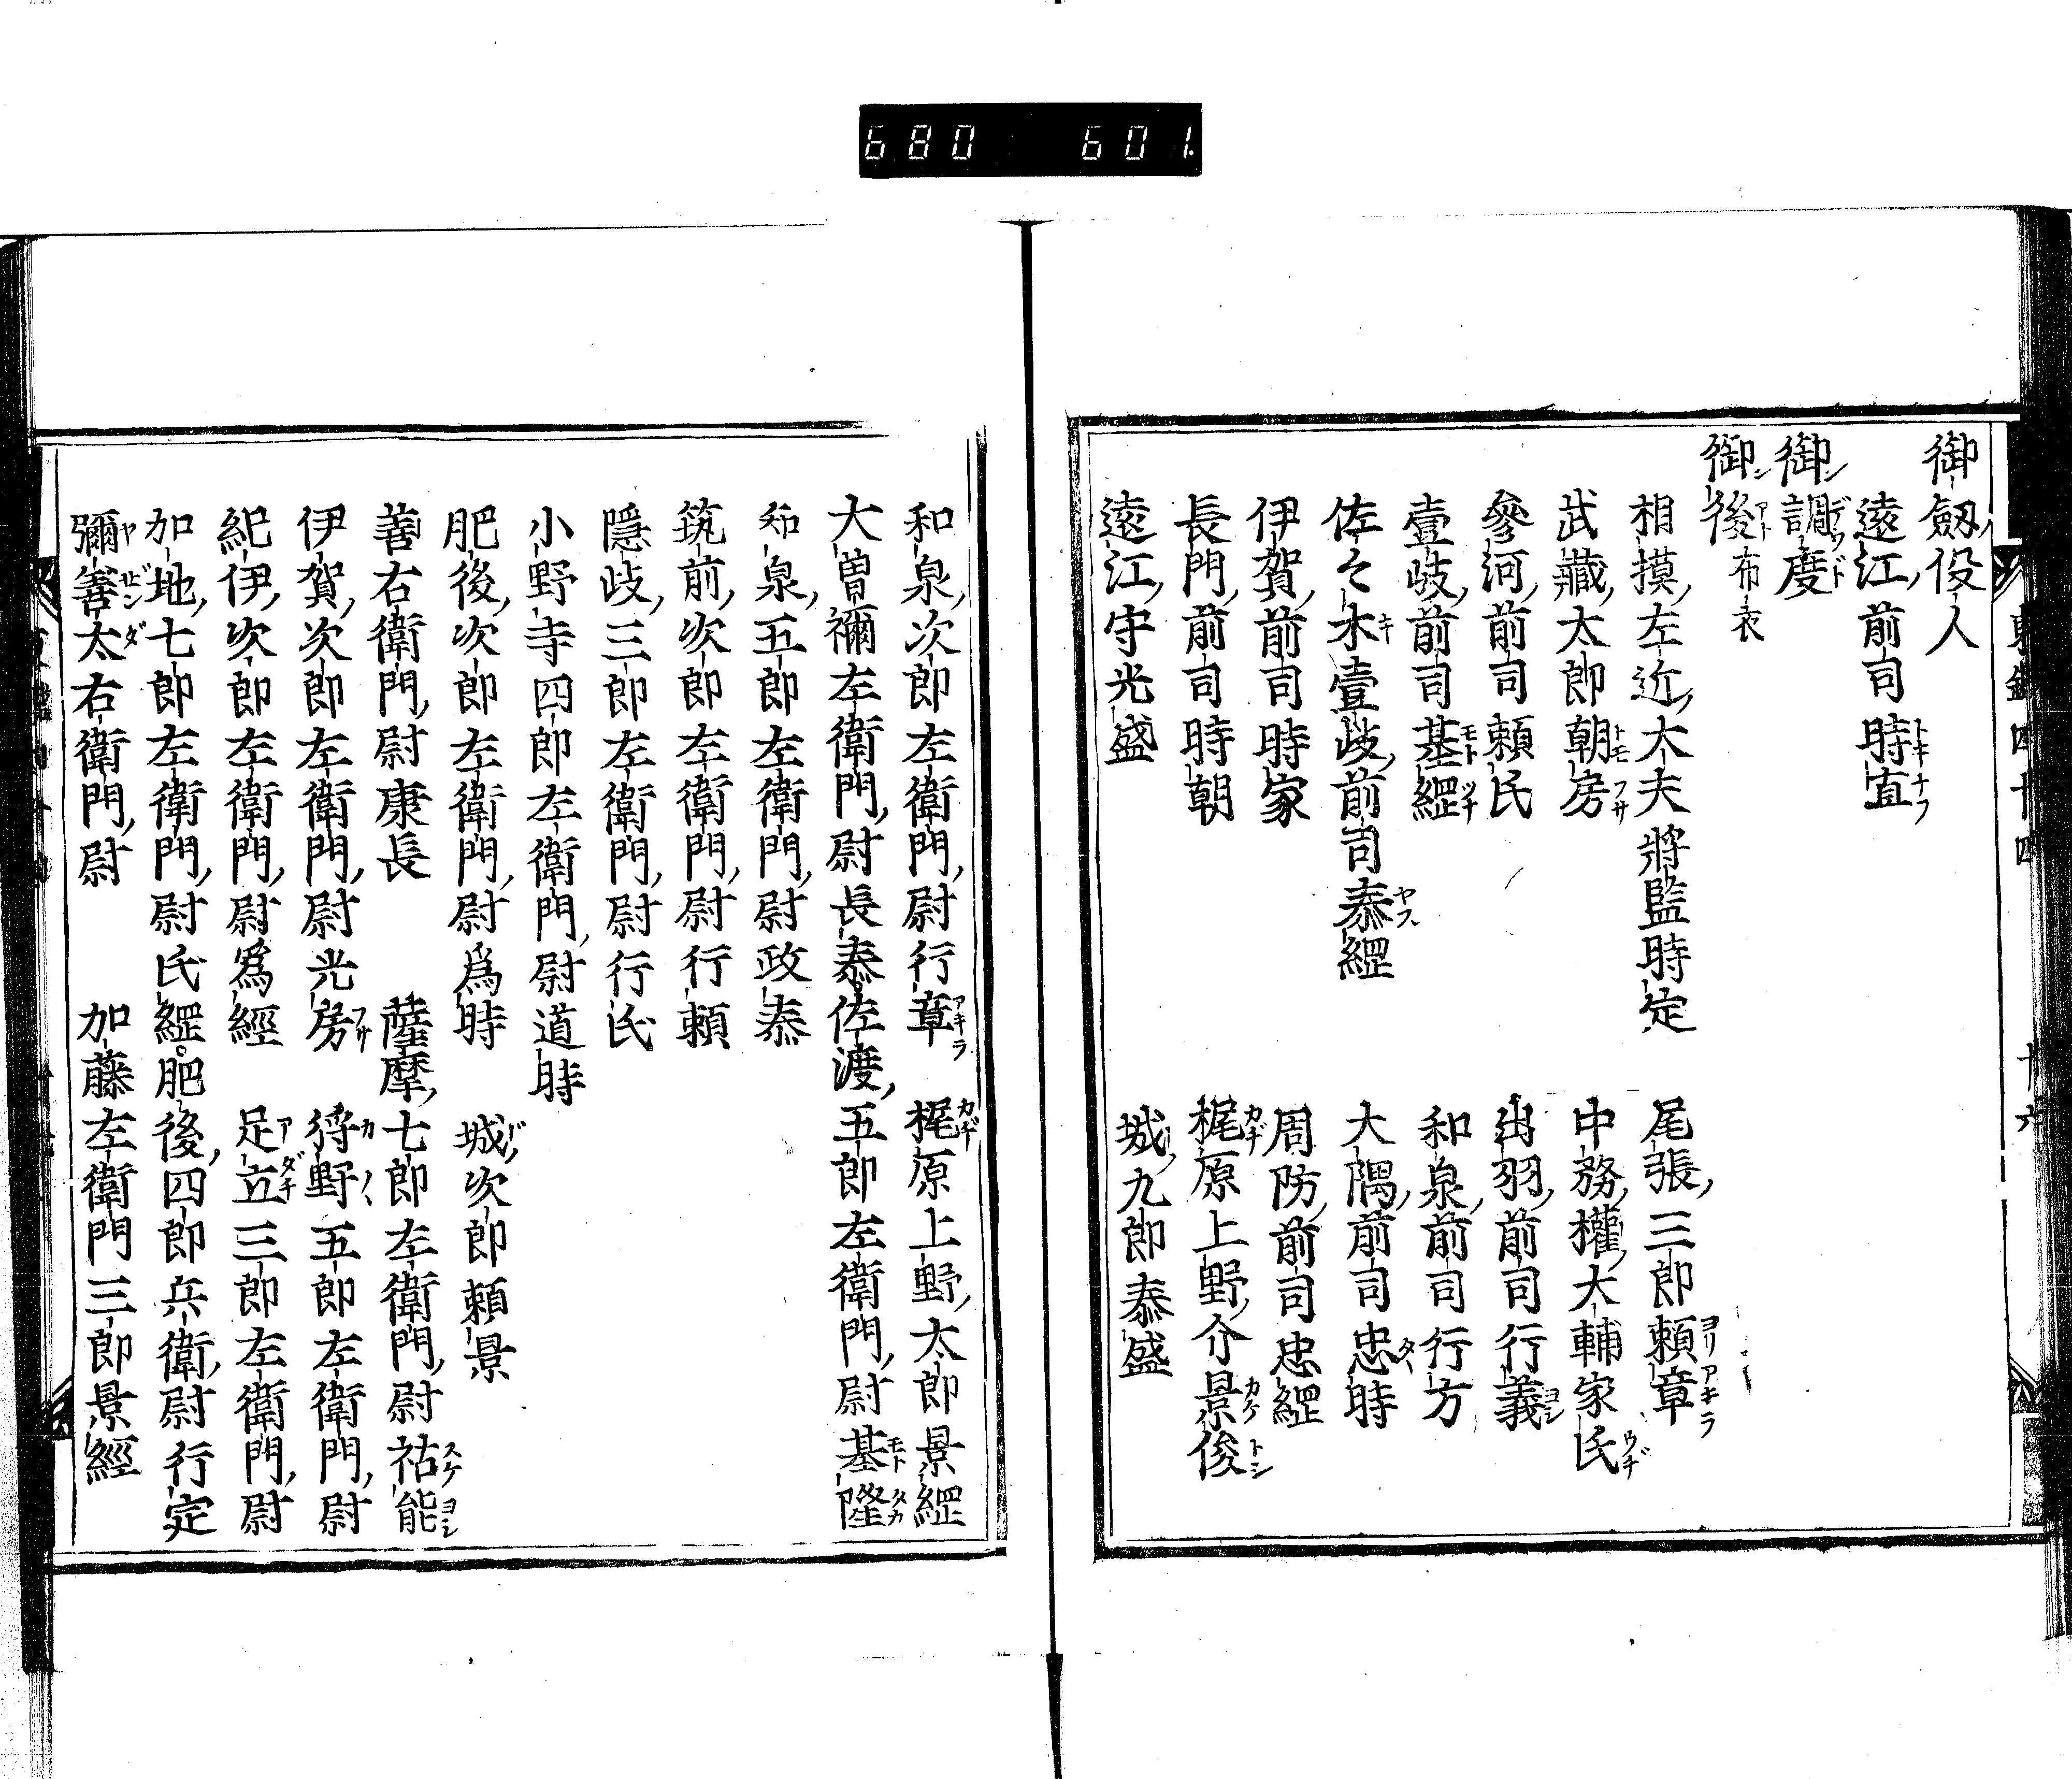 680 601
御劔役人
遠江前司時直
御調度
御後布衣
相摸左近大夫將監時定 尾張三郎頼章
武藏太郎朝房 中務權大輔家氏
參河前司頼氏 出羽前司行義
壹岐前司基經 和泉前司行方
佐々木壹岐前司泰經 大隅前司忠時
伊賀前司時家 周防前司忠經
長門前司時朝 梶原上野介景俊
遠江守光盛 城九郎泰盛
和泉次郎左衛門尉行章 梶原上野太郎景經
大曽禰左衛門尉長泰 佐渡五郎左衛門尉基隆
和泉五郎左衛門尉政泰
筑前次郎左衛門尉行頼
隱岐三郎左衛門尉行氏
小野寺四郎左衛門尉道時
肥後次郎左衛門尉爲時 城次郎頼景
善右衛門尉康長 薩摩七郎左衛門尉祐能
伊賀次郎左衛門尉光房 狩野五郎左衛門尉
紀伊次郎左衛門尉爲經 足立三郎左衛門尉
加地七郎左衛門尉氏經 肥後四郎兵衛尉行定
彌善太右衛門尉 加藤左衛門三郎景經